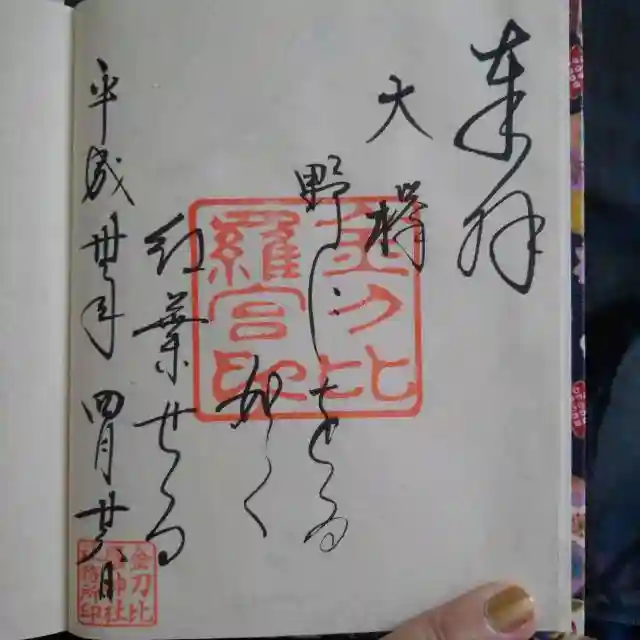 奉拝
大欅
野
如く
紅葉せる
平成卅年四月廿八日
金刀比
羅宮印
金刀比
羅神社
社務所印